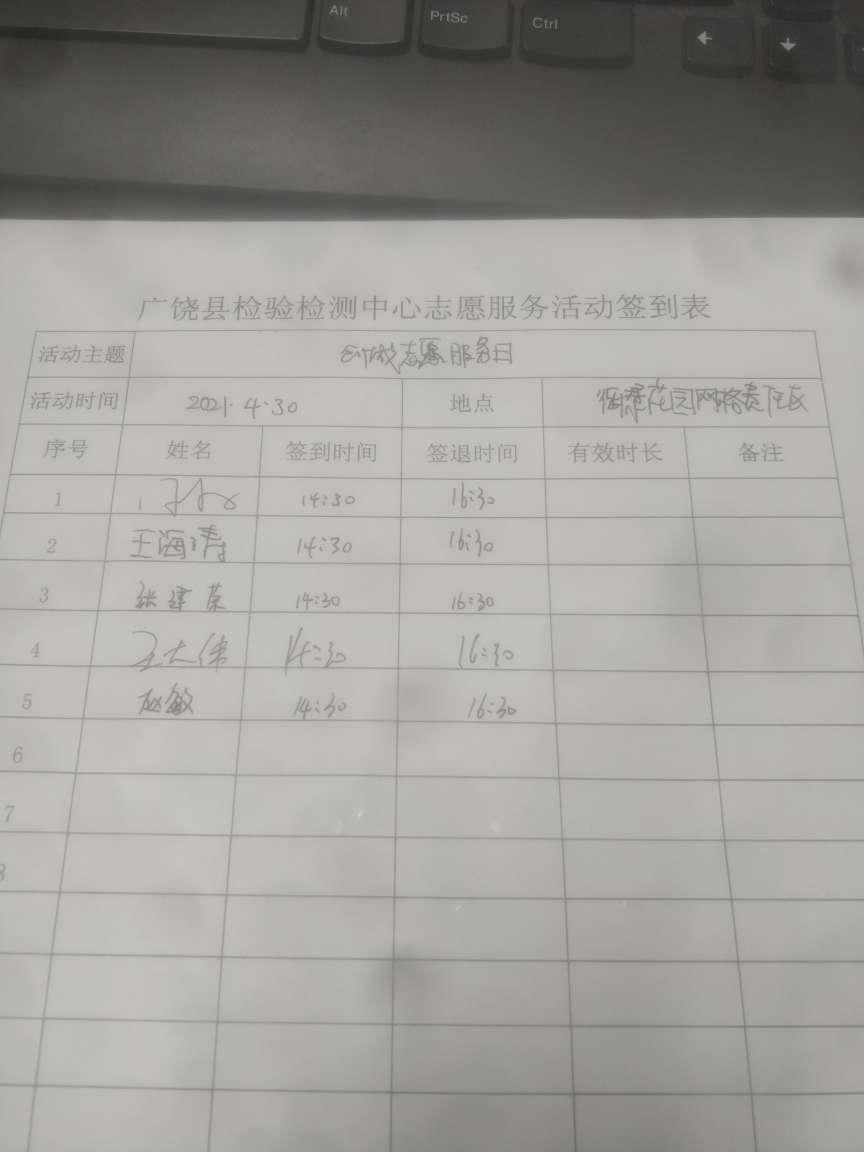 Alt PrtSc Ctrl ← ↓
广饶县检验检测中心志愿服务活动签到表
活动主题 创城志愿服务日
活动时间 2021.4.30 地点 花园网格责任区
序号 姓名 签到时间 签退时间 有效时长 备注
1 14:30 16:30
2 王海涛 14:30 16:30
3 张建荣 14:30 16:30
4 王大伟 14:30 16:30
5 赵敏 14:30 16:30
6
7
8